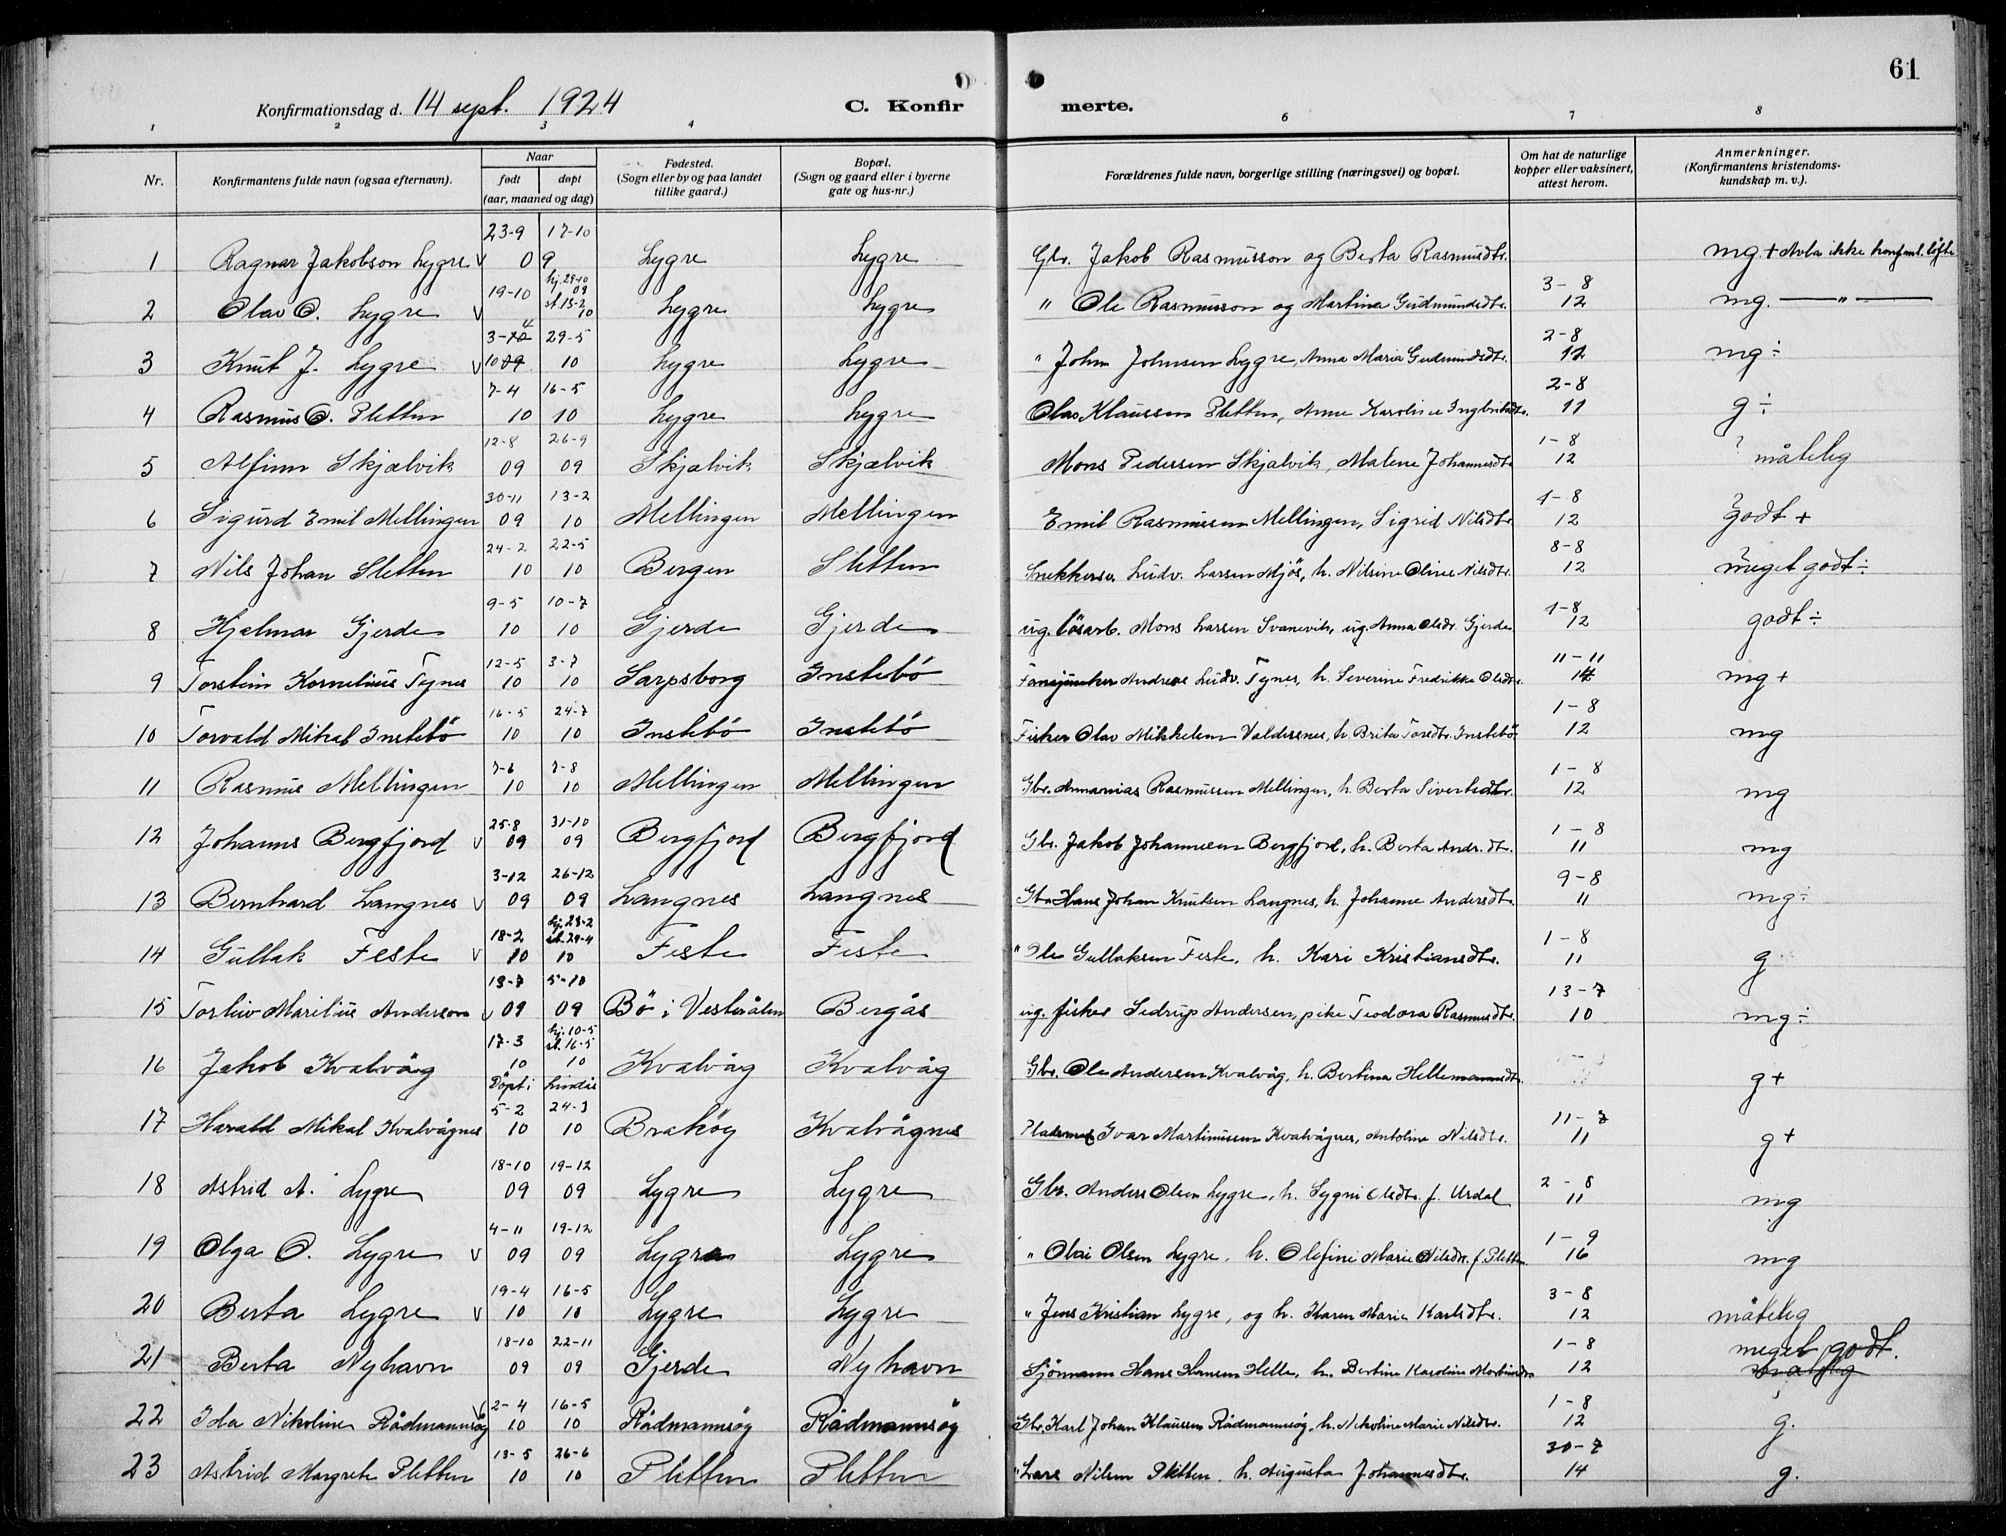 61
Konfirmationsdag d. 14 sept. 1924 C. Konfirmerte.
1 2 3 4 6 7 8
Nr. Konfirmantens fulde navn (ogsaa efternavn). Naar født døpt (aar, maaned og dag) Fødested. (Sogn eller by og paa landet tillike gaard.) Bopæl. (Sogn og gaard eller i byerne gate og hus-nr.) Forældrenes fulde navn, borgerlige stilling (næringsvei) og bopæl. Om hat de naturlige kopper eller vaksinert, attest herom. Anmerkninger. (Konfirmantens kristendomskundskap m. v.).
1 Ragnar Jakobson Lygre v 23-9 17-10 09 Lygre Lygre Gbr. Jakob Rasmusson og Berta Rasmusdtr. mg + Avla ikke konfml. löfte
2 Olav O. Lygre v 19-10 hj. 29-10 09 st. 13-2 10 Lygre Lygre " Ole Rasmusson og Martina Gudmundsdtr. 3-8 12 mg. — " —
3 Knut J. Lygre v 3-4 10 29-5 10 Lygre Lygre " John Johnsen Lygre, Anna Maria Gudmundsdtr. 2-8 12 mg ÷
4 Rasmus O. Sletten 7-4 10 16-5 10 Lygre Lygre Olav Klaussen Sletten, Anne Karoline 2-8 11 g ÷
5 Alfinn Skjælvik 12-8 09 26-9 09 Skjælvik Skjælvik Mons Pedersen Skjælvik, Malene Johannesdtr. 1-8 12 ? måtelig
6 Sigurd Emil Mellingen 30-11 09 13-2 10 Mellingen Mellingen Emil Rasmussen Mellingen, Sigrid Nilsdtr. 1-8 12 godt +
7 Nils Johan Sletten 24-2 10 22-5 10 Bergen Sletten Snekkersv. Ludv. Larsen Mjös, h. Nilsine Oline Nilsdtr. 8-8 12 meget godt ÷
8 Hjelmar Gjerde 9-5 10 10-7 10 Gjerde Gjerde ug. lösarb. Mons Larsen Svanevik, ug. Anna Olsdr. Gjerde 1-8 12 godt ÷
9 Torstein Kornelius Tynes 12-5 10 3-7 10 Sarpsborg Instebö Andreas Ludv. Tynes, h. Severine Fredrikke Olsdtr. 11-11 14 mg +
10 Torvald Mikal Instebö 16-5 10 24-7 10 Instebö Instebö Fisker Olav Mikkelsen Valdersnes, h. Brita Toredtr. Instebö 1-8 12 mg
11 Rasmus Mellingen 7-6 10 7-8 10 Mellingen Mellingen Gbr. Annanias Rasmussen Mellingen, h. Berta Sivertsdtr. 1-8 12 mg
12 Johannes Bergfjord v 25-8 09 31-10 09 Bergfjord Bergfjord Gbr. Jakob Johannesen Bergfjord, h. Berta Andr.dtr. 1-8 11 mg
13 Bernhard Langnes v 3-12 09 26-12 09 Langnes Langnes Gbr. Hans Johan Knutsen Langnes, h. Johanne Andersdtr. 9-8 11 mg ÷
14 Gullak Feste v 18-2 10 hj. 23-2 st. 24-4 10 Feste Feste " Ole Gullaksen Feste, h. Kari Kristiansdtr. 1-8 11 g
15 Torleiv Marelius Anderson v 13-7 09 5-10 09 Bö i Vesterålen Bergås ug. fisker Sedrup Andersen, pike Teodora Rasmusdtr. 13-7 10 mg ÷
16 Jakob Kvalvåg 17-3 10 hj. 10-5 st. 16-5 10 Kvalvåg Kvalvåg Gbr. Ole Andersen Kvalvåg, h. Bertina Hellemannsdtr. g +
Döpt i
17 Harald Mikal Kvalvågnes 5-2 10 24-3 10 Brakög Kvalvågnes Ivar Martinussen Kvalvågnes, Antoline Nilsdtr. 11-7 11 g +
18 Astrid A. Lygre 18-10 09 19-12 09 Lygre Lygre Gbr. Anders Olsen Lygre, h. Sygni Olsdtr. f. Urdal 2-8 11 mg
19 Olga O. Lygre v 4-11 09 19-12 09 Lygre Lygre " Olai Olsen Lygre, h. Olefine Marie Nilsdtr. f. Sletten 1-9 16 mg
20 Berta Lygre v 19-4 10 16-5 10 Lygre Lygre " Jens Kristian Lygre, og h. Karen Marie Karlsdtr. 3-8 12 måtelig
21 Berta Nyhavn 18-10 09 22-11 09 Gjerde Nyhavn Sjömann Hans Hansen Helle, h. Bertine Karoline 1-8 12 meget godt.
22 Ida Nikoline Rådmannsög v 2-4 10 16-5 10 Rådmannsög Rådmannsög Gbr. Karl Johan Klaussen Rådmannsög, h. Nikoline Marie Nilsdtr. 1-8 12 g.
23 Astrid Margrete Sletten 13-5 10 26-6 10 Sletten Sletten " Lars Nilsen Sletten, h. Augusta Johannesdtr. 30-7 14 g.